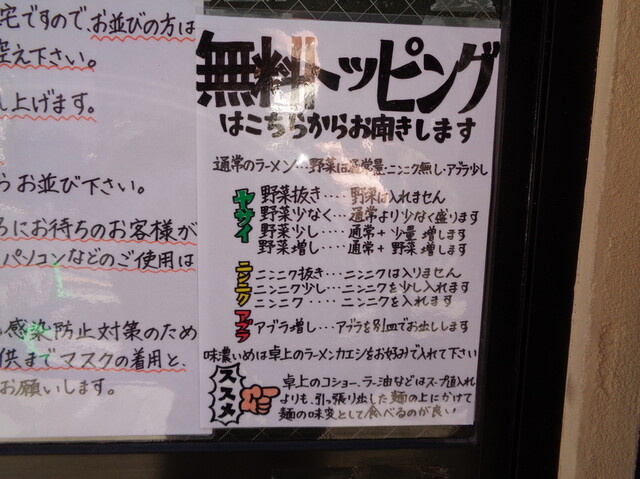 宅ですので、お並びの方は
控え下さい。
し上げます。
らお並び下さい。
ろにお待ちのお客様が
パソコンなどのご使用は
感染防止対策のため
供までマスクの着用と、
お願いします。
無料トッピング
はこちらからお聞きします
通常のラーメン…野菜は通常量・ニンニク無し・アブラ少し
ヤサイ
野菜抜き‥‥野菜は入れません
野菜少なく…通常より少なく盛ります
野菜少し‥‥通常+少量増します
野菜増し‥‥通常+野菜増します
ニンニク
ニンニク抜き…ニンニクは入りません
ニンニク少し…ニンニクを少し入れます
ニンニク‥‥ニンニクを入れます
アブラ
アブラ増し…アブラを別皿でお出しします
味濃いめは卓上のラーメンカエシをお好みで入れて下さい
ススメ
卓上のコショー、ラー油などはスープ直入れ
よりも、引っ張り出した麺の上にかけて
麺の味変として食べるのが良い!